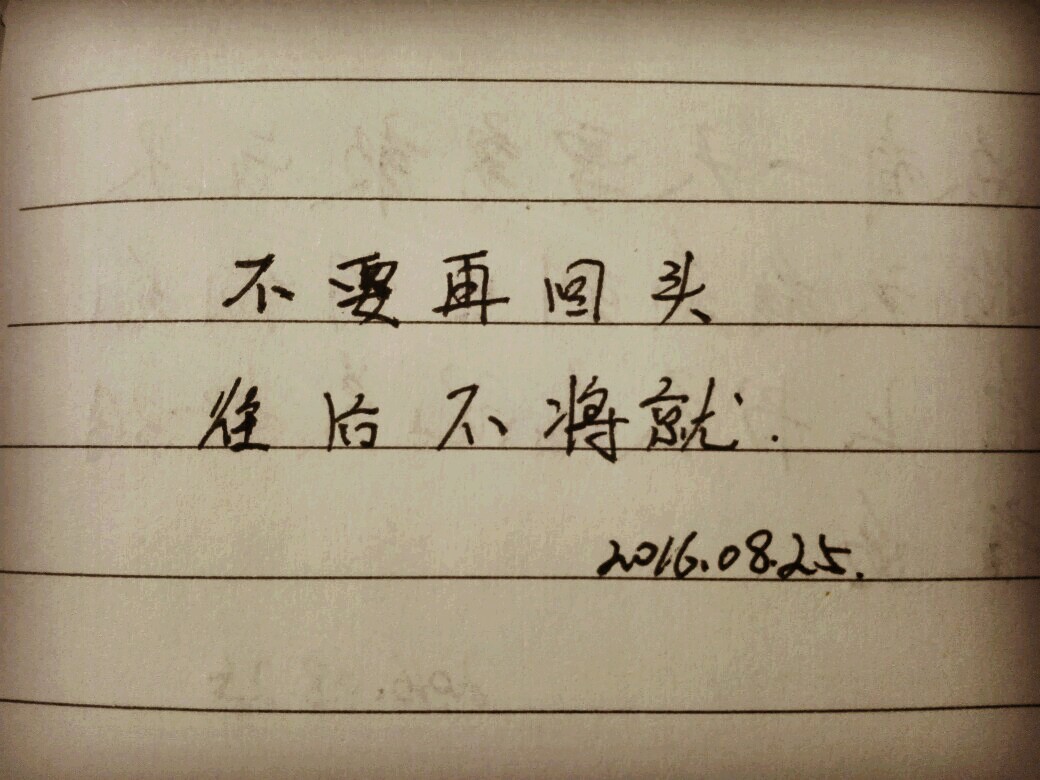 不要再回头
往后不将就.
2016.08.25.